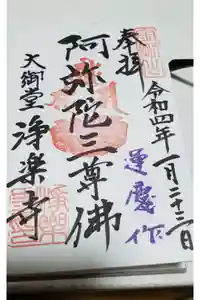 奉拝
令和四年一月二十三日
運慶作
阿弥陀三尊佛
大御堂
浄楽寺